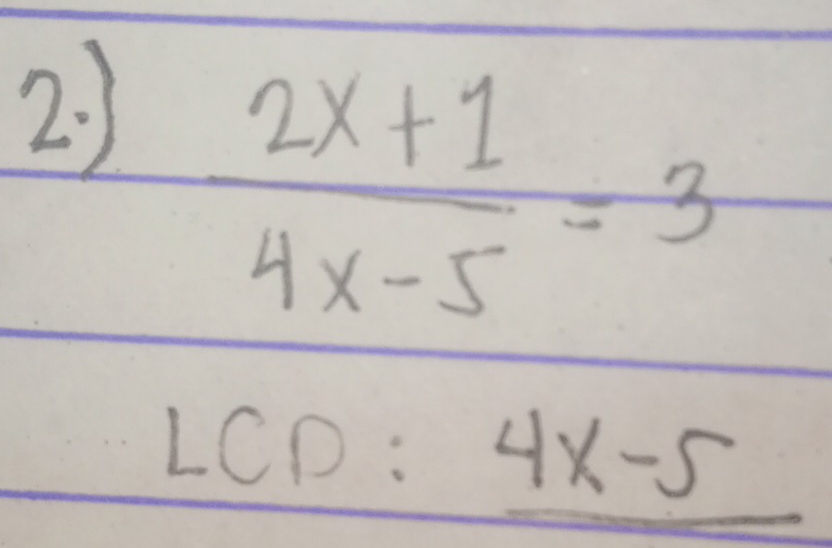 2.) 2x + 1
4x - 5 = 3
LCD : 4x - 5